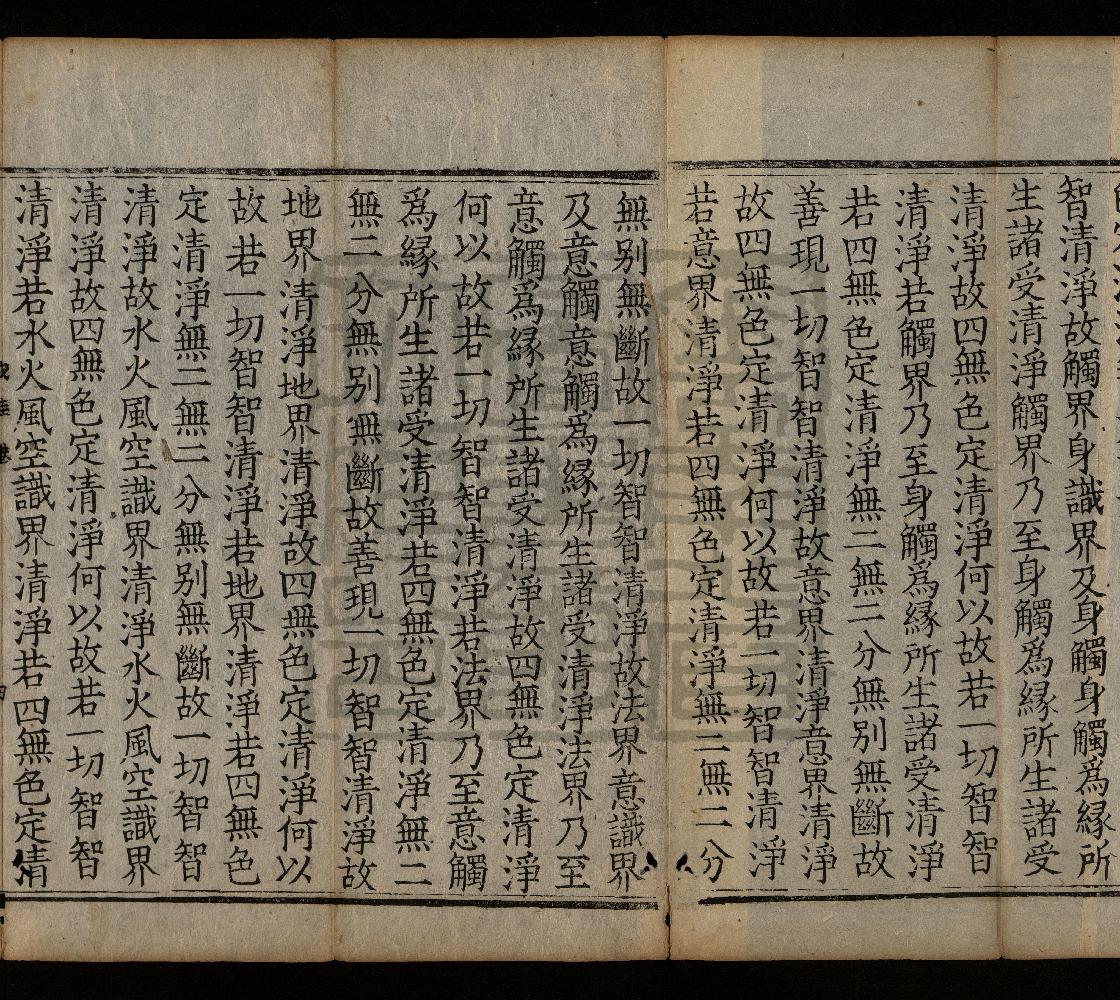 智清淨故觸界身識界及身觸身觸爲緣所
生諸受清淨觸界乃至身觸爲緣所生諸受
清淨故四無色定清淨何以故若一切智智
清淨若觸界乃至身觸爲緣所生諸受清淨
若四無色定清淨無二無二分無别無斷故
善現一切智智清淨故意界清淨意界清淨
故四無色定清淨何以故若一切智智清淨
若意界清淨若四無色定清淨無二無二分
無别無斷故一切智智清淨故法界意識界
及意觸意觸爲緣所生諸受清淨法界乃至
意觸爲緣所生諸受清淨故四無色定清淨
何以故若一切智智清淨若法界乃至意觸
爲緣所生諸受清淨若四無色定清淨無二
無二分無别無斷故善現一切智智清淨故
地界清淨地界清淨故四無色定清淨何以
故若一切智智清淨若地界清淨若四無色
定清淨無二無二分無别無斷故一切智智
清淨故水火風空識界清淨水火風空識界
清淨故四無色定清淨何以故若一切智智
清淨若水火風空識界清淨若四無色定清